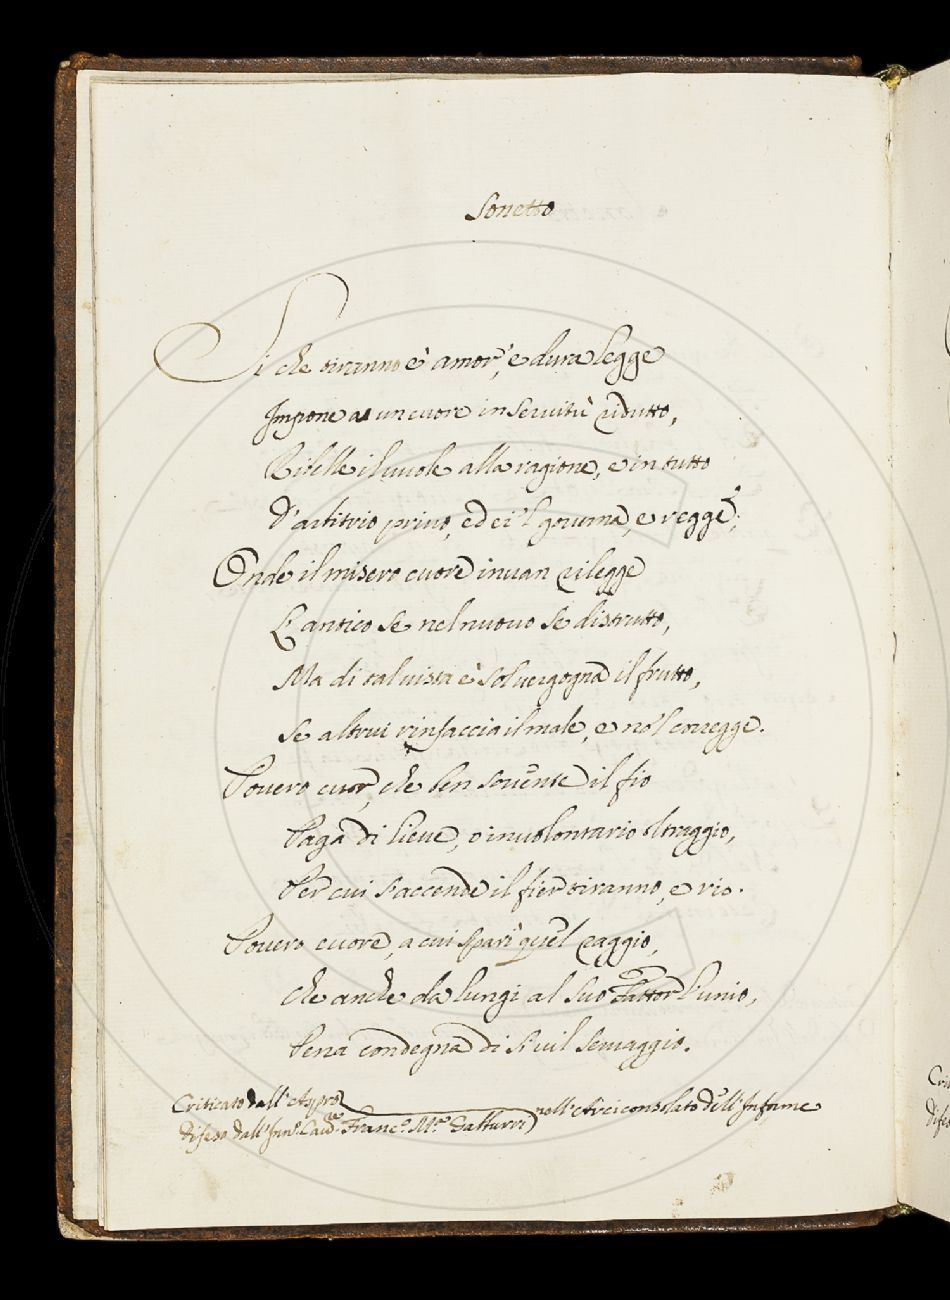 Sonetto
Si che tiranno è amor, e dura legge
Impone a un cuore in servitù ridutto,
Ribelle il vuole alla ragione, e in tutto
D'arbitrio privo, ed ei 'l governa, e regge;
Onde il misero cuore invan rilegge
L'antico se nel nuovo se distrutto,
Ma di tal vista è sol vergogna il frutto,
Se altrui rinfaccia il male, e no'l corregge.
Povero cuor, che ben sovente il fio
Paga di lieve, o involontario oltraggio,
Per cui s'accende il fier tiranno, e rio.
Povero cuore, a cui sparì quel raggio,
Che anche da lungi al suo Fattor l'unio,
Pena condegna di sì vil servaggio.
Criticato dall' nell'Arciconsolato dell'
difeso dall' Franc.o M.a
Cri
difes